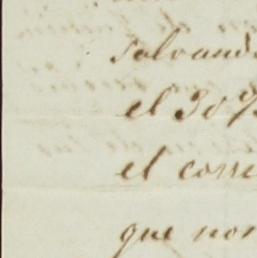 salvand
el 30 %
el corre
que non